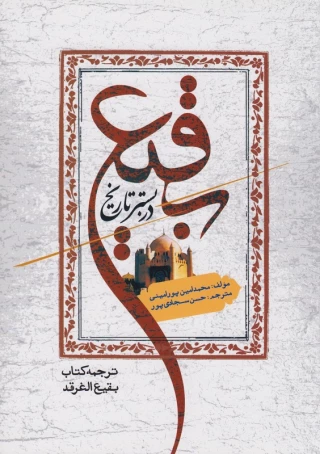 بقیع
در بستر تاریخ
مولف: محمدامین پورامینی
مترجم: حسن سجادی‌پور
ترجمه کتاب
بقیع الغرقد